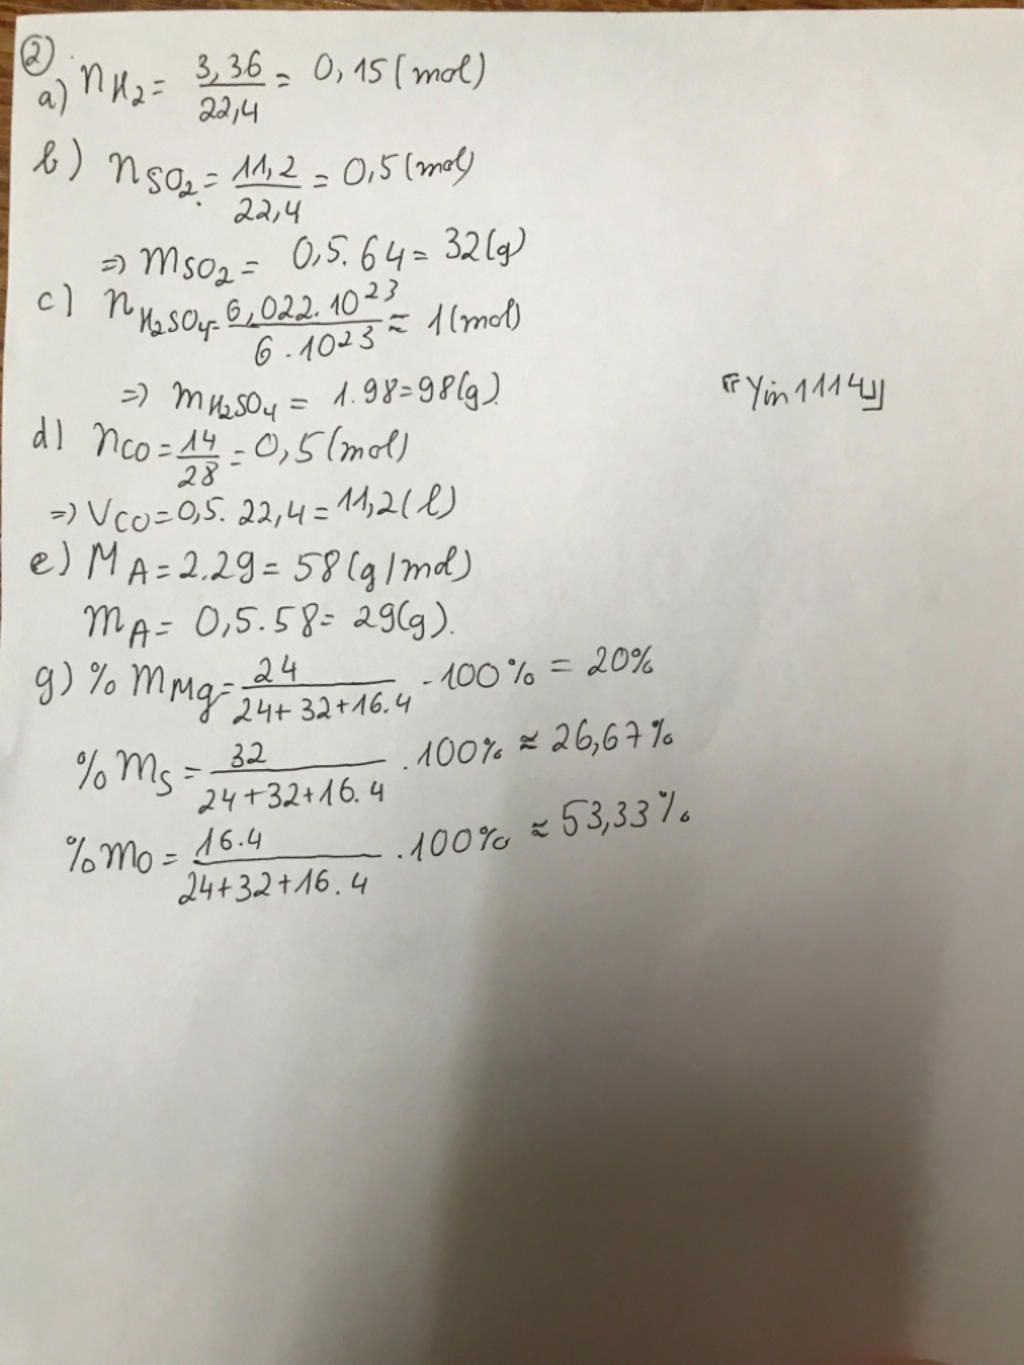 ②
a) nH₂ = 3,36/22,4 = 0,15 (mol)
b) nSO₂ = 11,2/22,4 = 0,5 (mol)
=> mSO₂ = 0,5.64 = 32 (g)
c) nH₂SO₄ = 6,022.10²³/6.10²³ ≈ 1 (mol)
=> mH₂SO₄ = 1.98 = 98 (g).
『Yin1114』
d) nCO = 14/28 = 0,5 (mol)
=> VCO = 0,5. 22,4 = 11,2 (l)
e) MA = 2.29 = 58 (g/mol)
mA = 0,5.58 = 29 (g).
g) % mMg = 24/(24+32+16.4) .100% = 20%
% mS = 32/(24+32+16.4) .100% ≈ 26,67%
% mO = 16.4/(24+32+16.4) .100% ≈ 53,33%